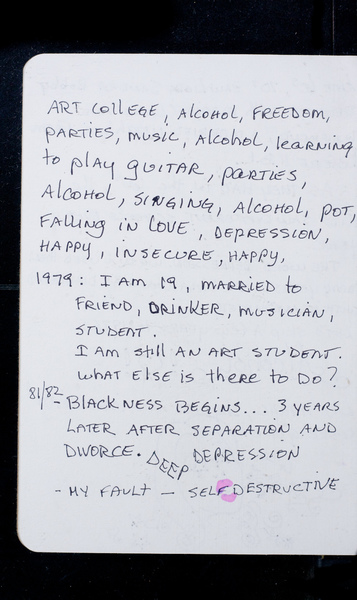 ART COllEGE, AlCOHOL, FREEDOM,
PARTIES, MUSIC, AlCOhOl, lEARNING
to PlAY GUITAR, PARTIES,
AlCOHOL, SINGING, AlCOHOL, POT,
FAlliNG IN lOVE, DEPRESSION,
HAPPY, INSECURE, HAPPY,
1979: I AM 19, MARRIED to
FRIEND, DRINKER, MUSICIAN,
STUDENT.
I AM still AN ART STUDENT.
WhAT ElSE is thERE to DO?
81/82
- BlACKNESS BEGINS... 3 YEARS
LATER AFTER SEPARATION AND
DIVORCE. DEEP DEPRESSION
- MY FAULT - SELFDESTRUCTIVE